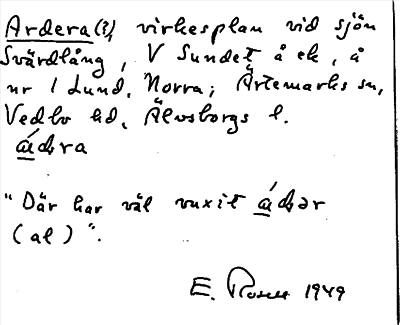 Ardera (?), virkesplan vid sjön
Svärdlång, V Sundet å ek, å
nr 1 Lund, Norra; Ärtemarks sn,
Vedbo hd, Älvsborgs l.
ádra
"Där har väl vuxit ádər
(al)".
E. 1949